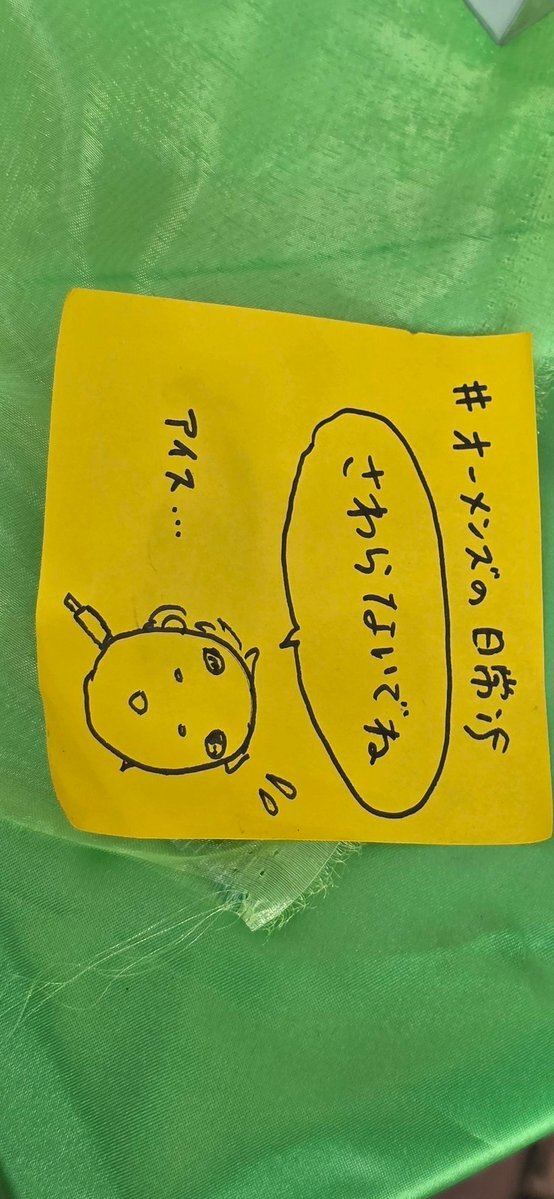 #オーメンズの日常沼
さわらないでね
アイス…